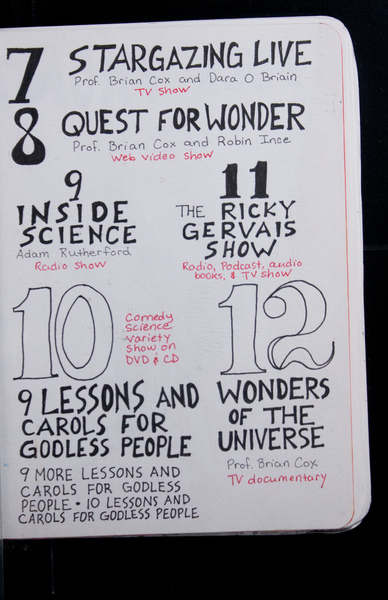 7
STARGAZING LIVE
Prof. Brian Cox and Dara O Briain
TV Show
8
QUEST FOR WONDER
Prof. Brian Cox and Robin Ince
Web video show
9
INSIDE
SCIENCE
Adam Rutherford
Radio Show
11
THE RICKY
GERVAIS
SHOW
Radio, Podcast, audio
books, & TV show
10
Comedy
Science
Variety
Show on
DVD & CD
9 LESSONS AND
CAROLS FOR
GODLESS PEOPLE
9 MORE LESSONS AND
CAROLS FOR GODLESS
PEOPLE • 10 LESSONS AND
CAROLS FOR GODLESS PEOPLE
12
WONDERS
OF THE
UNIVERSE
Prof. Brian Cox
TV documentary